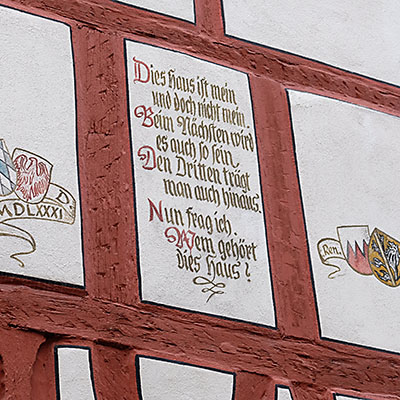 Dies Haus ist mein
und doch nicht mein
Beim Nächsten wird
es auch so sein
Den Dritten trägt
man auch hinaus.
Nun frag ich.
Wem gehört
dies Haus?
D
MDLXXXI